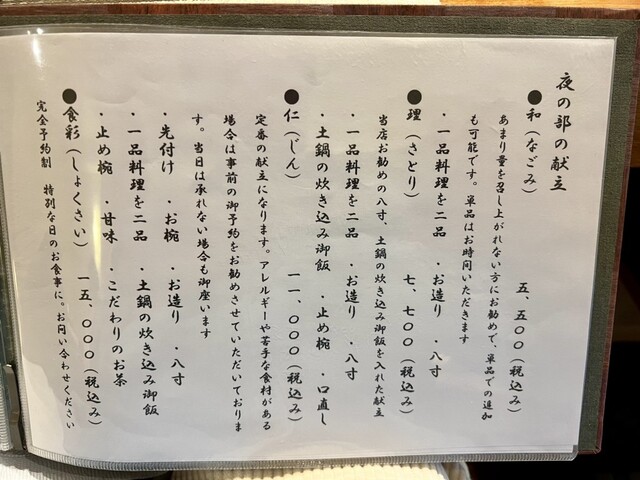 夜の部の献立
●和（なごみ）　五、五〇〇（税込み）
あまり量を召し上がれない方にお勧めで、単品での追加
も可能です。単品はお時間いただきます
・一品料理を二品　・お造り　・八寸
●理（さとり）　七、七〇〇（税込み）
当店お勧めの八寸、土鍋の炊き込み御飯を入れた献立
・一品料理を二品　・お造り　・八寸
・土鍋の炊き込み御飯　・止め椀　・口直し
●仁（じん）　一一、〇〇〇（税込み）
定番の献立になります。アレルギーや苦手な食材がある
場合は事前の御予約をお勧めさせていただいておりま
す。当日は承れない場合も御座います
・先付け　・お椀　・お造り　・八寸
・一品料理を二品　・土鍋の炊き込み御飯
・止め椀　・甘味　・こだわりのお茶
●食彩（しょくさい）　一五、〇〇〇（税込み）
完全予約制　特別な日のお食事に。お問い合わせください